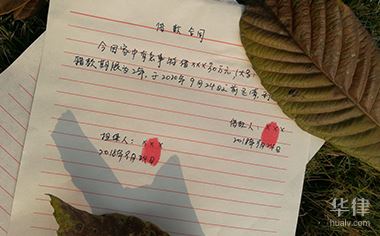 借款合同
今因家中有急事特借xxx30万元(大写
借款期限为2年,于2020年9月24日之前还清,利
借款人: xxx
2018年9月24日
担保人: xxx
2018年9月24日
华律
hualv.com